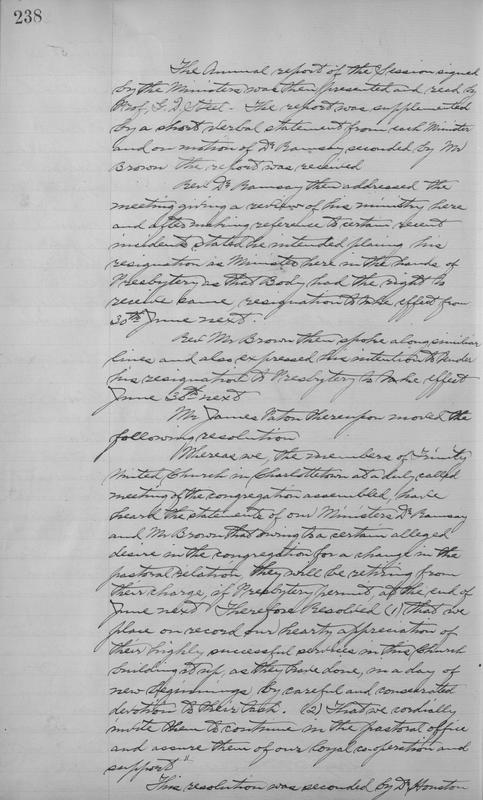 238
The Annual report of the Session signed
by the Ministers was then presented and read by
Prof. L. D. Steel - The report was supplemented
by a short verbal statement from each Minister
and on motion of Dr Ramsay seconded by Mr
Brown the report was received
Rev. Dr Ramsay then addressed the
meeting giving a review of his ministry here
and after making reference to certain recent
incidents stated he intended placing his
resignation as Minister here in the hands of
Presbytery as that Body had the right to
receive same, resignation to take effect from
30th June next.
Rev. Mr Brown then spoke along similar
lines and also expressed his intention to tender
his resignation to Presbytery to take effect
June 30th next
Mr James Paton thereupon moved the
following resolution
"Whereas we, the members of Trinity
United Church in Charlottetown at a duly called
meeting of the congregation assembled, have
heard the statements of our Ministers Dr Ramsay
and Mr Brown that owing to a certain alleged
desire in the congregation for a change in the
pastoral relation, they will be retiring from
their charge, if Presbytery permit, at the end of
June next Therefore Resolved (1) that we
place on record our hearty appreciation of
their highly successful services in this Church
building it up, as they have done, in a day of
new beginnings, by careful and consecrated
devotion to their task. (2) That we cordially
invite them to continue in the pastoral office
and assure them of our loyal co-operation and
support"
This resolution was seconded by Dr Houston